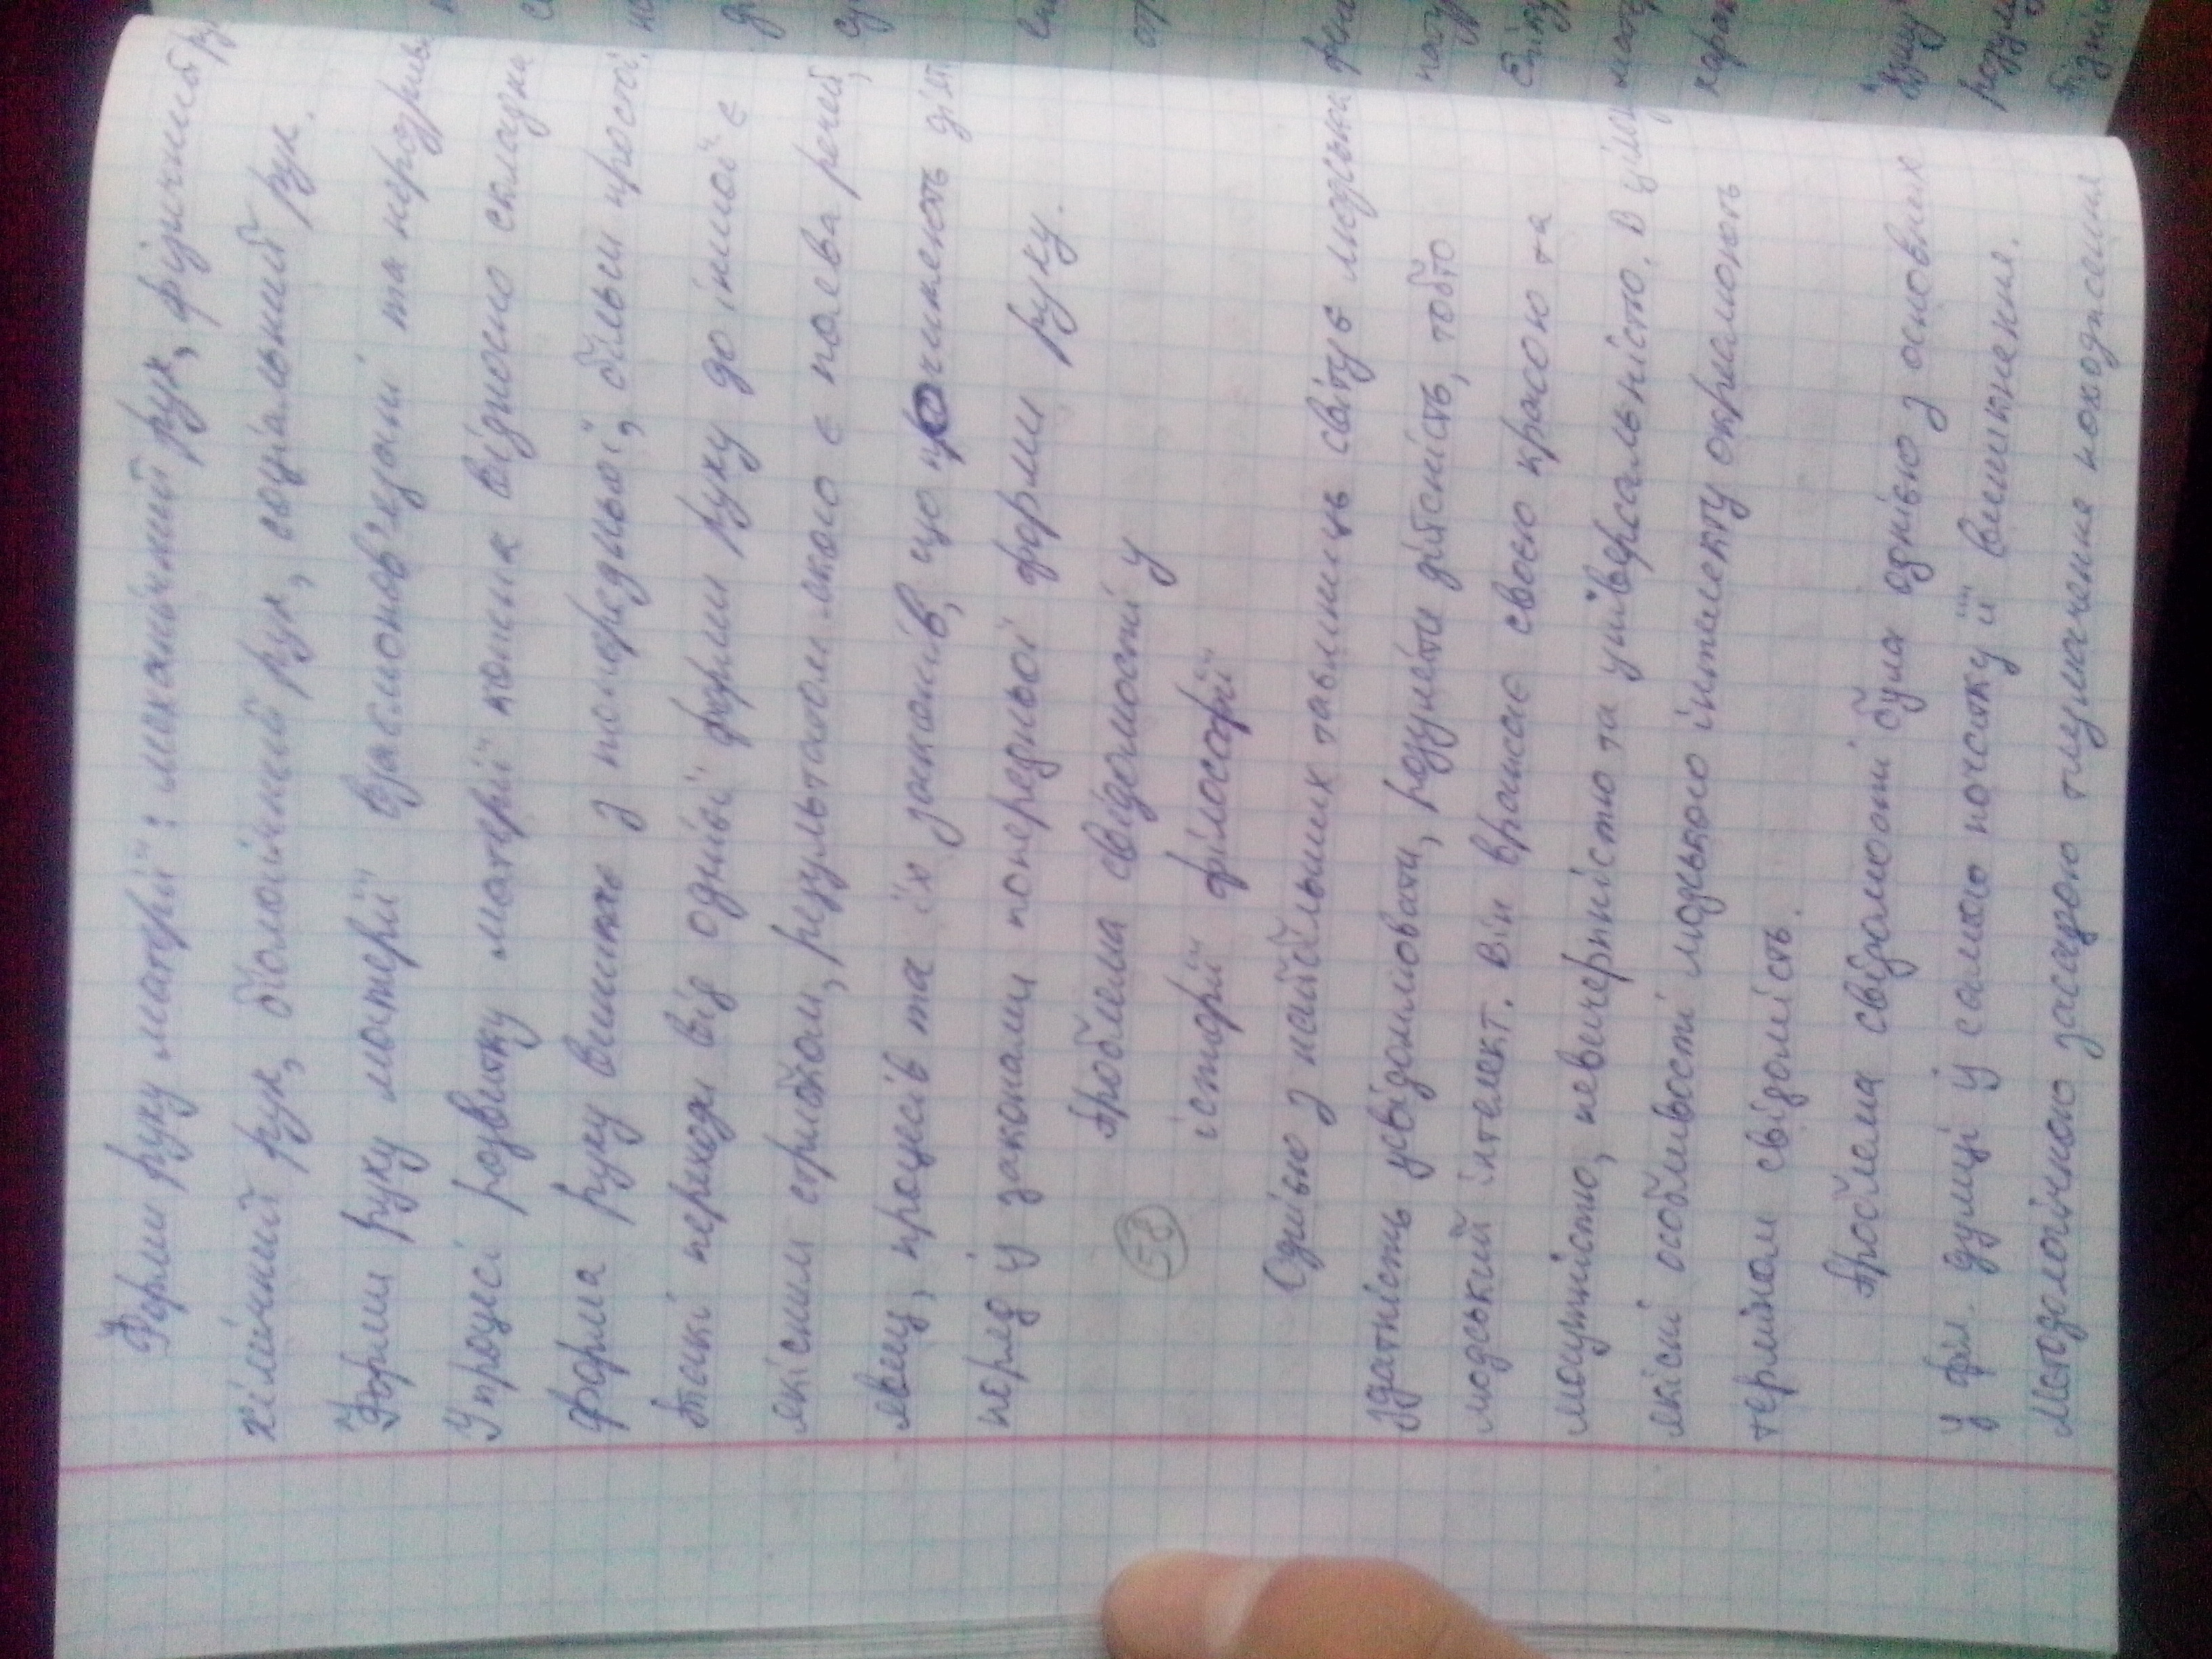 Форми руху матерії: механічний рух, фізичний рух
хімічний рух, біологічний рух, соціальний рух.
Форми руху матерії взаємопов'язані та нерозривн
У процесі розвитку матерії кожна відносно складна
форма руху виникає з попередньої, більш простої.
Такі переходи від однієї форми руху до іншої є
якісним стрибком, результатом якого є поява речей,
явищ, процесів та їх законів, що починають діяти
поряд із законами попередньої форми руху.
Проблема свідомості у
58
історії філософії
Однією з найбільших таємниць світу є людська
здатність усвідомлювати, розуміти дійсність, тобто
людський інтелект. Він вражає своєю красою та
могутністю, невичерпністю та універсальністю. В цілому
якісні особливості людського інтелекту окреслюють
терміном свідомість.
Проблема свідомості була однією з основних
у філ. думці із самого початку її виникнення.
Методологічною засадою тлумачення походження